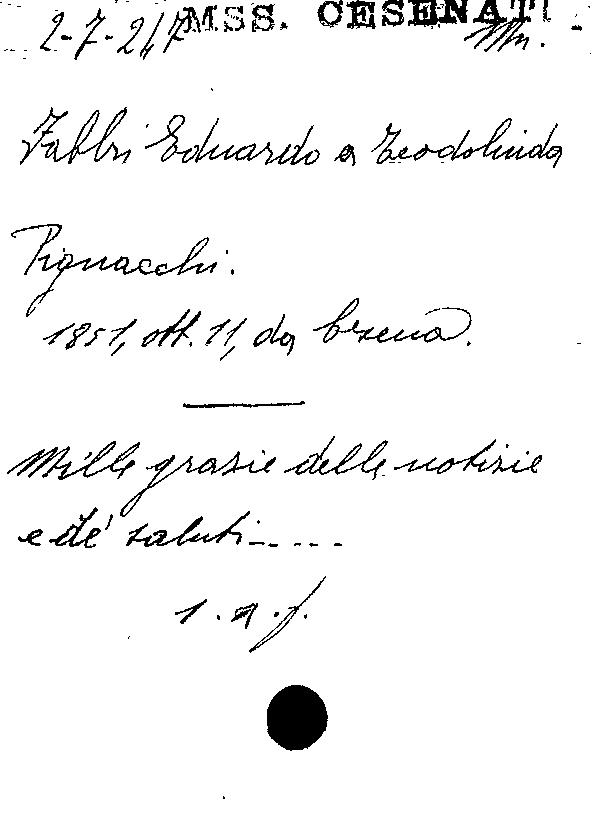 MSS. CESENATI
2-7-2/17 Mn.
Fabbri Eduardo a Teodolinda
Pignacchi.
1851, ott. 11, da Cesena.
Mille grazie delle notizie
e de' saluti-....
1. a. f.